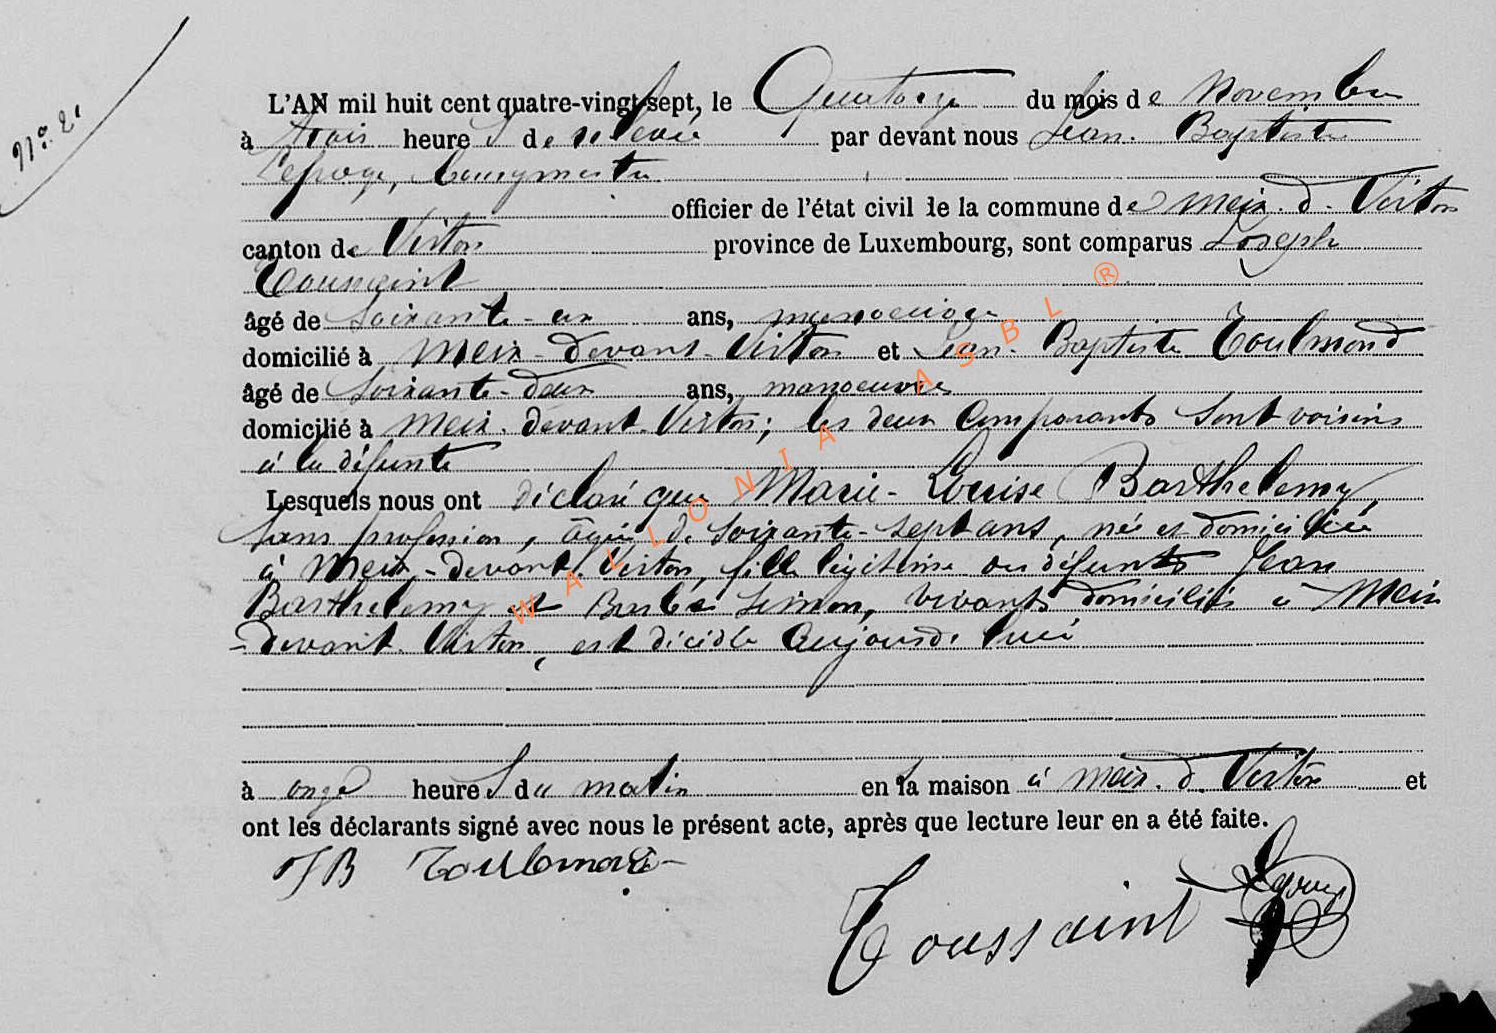 N° 21
L'AN mil huit cent quatre-vingt-sept, le Quatorze du mois de Novembre
à trois heures de relevée par devant nous Jean-Baptiste
Lefroye, bourgmestre
officier de l'état civil de la commune de Meix-d-Virton
canton de Virton province de Luxembourg, sont comparus Joseph
Toussaint
âgé de soixante-un ans, manoeuvre
domicilié à Meix-devant-Virton et Jean-Baptiste Toulmond
âgé de soixante-deux ans, manoeuvre
domicilié à Meix-devant-Virton; les deux comparants sont voisins
à la défunte
Lesquels nous ont déclaré que Marie-Louise Barthelemy,
sans profession, agée de soixante-sept ans, née et domiciliée
à Meix-devant Virton, fille légitime des défunts Jean
Barthelemy et Barbe Simon, vivants domiciliés à Meix
-devant-Virton, est décidée aujourd'hui
à onze heures du matin en sa maison à Meix-d-Virton et
ont les déclarants signé avec nous le présent acte, après que lecture leur en a été faite.
JB Toulmond
Toussaint
WALLONIA ASBL ®